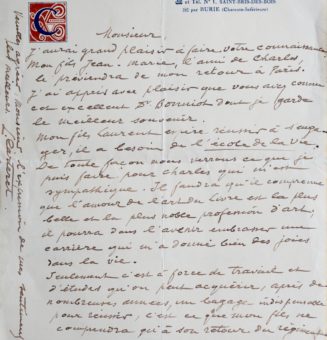 et Tél. N° 1, SAINT-BRIS-DES-BOIS
par BURIE (Charente-Inférieure)
Monsieur,
J'aurai grand plaisir à faire votre connaissance
Mon fils Jean-Marie, l'ami de Charles,
le préviendra de mon retour à Paris.
J'ai appris avec plaisir que vous aviez connu
cet excellent Dr Bonniot dont je garde
le meilleur souvenir.
Mon fils Laurent espère réussir à s'enga-
ger, il a besoin de l'école de la vie.
De toute façon nous verrons ce que je
puis faire pour Charles qui m'est
sympathique. Il faudra qu'il comprenne
que l'amour de l'art du livre est la plus
belle et la plus noble profession d'art,
il pourra dans l'avenir embrasser une
carrière qui m'a donné bien des joies
dans la vie.
Seulement c'est à force de travail et
d'études qu'on peut acquérir, après de
nombreuses années, un bagage indispensable
pour réussir, c'est ce que mon fils ne
comprendra qu'à son retour du régiment
Veuillez agréer, Monsieur, l'expression de mes sentiments
les meilleurs.